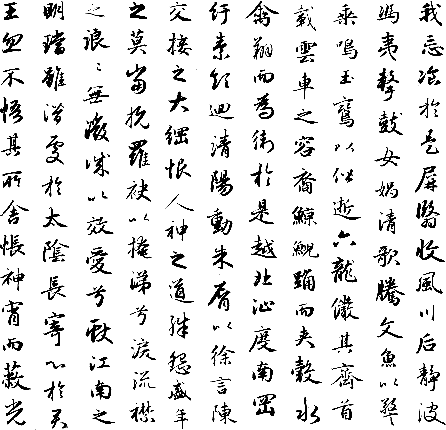 我忘飡於是屏翳收風川后靜波
馮夷擊鼓女媧清歌騰文魚以警
乘鳴玉鸞以偕逝六龍儼其齊首
載雲車之容裔鯨鯢踊而夾轂水
禽翔而為衛於是越北沚度南岡
紆素領迴清陽動朱脣以徐言陳
交接之大綱恨人神之道殊怨盛年
之莫當抗羅袂以掩涕兮淚流襟
之浪〻無微情以效愛兮獻江南之
明璫雖潛處於太陰長寄心於君
王忽不悟其所舍悵神宵而蔽光